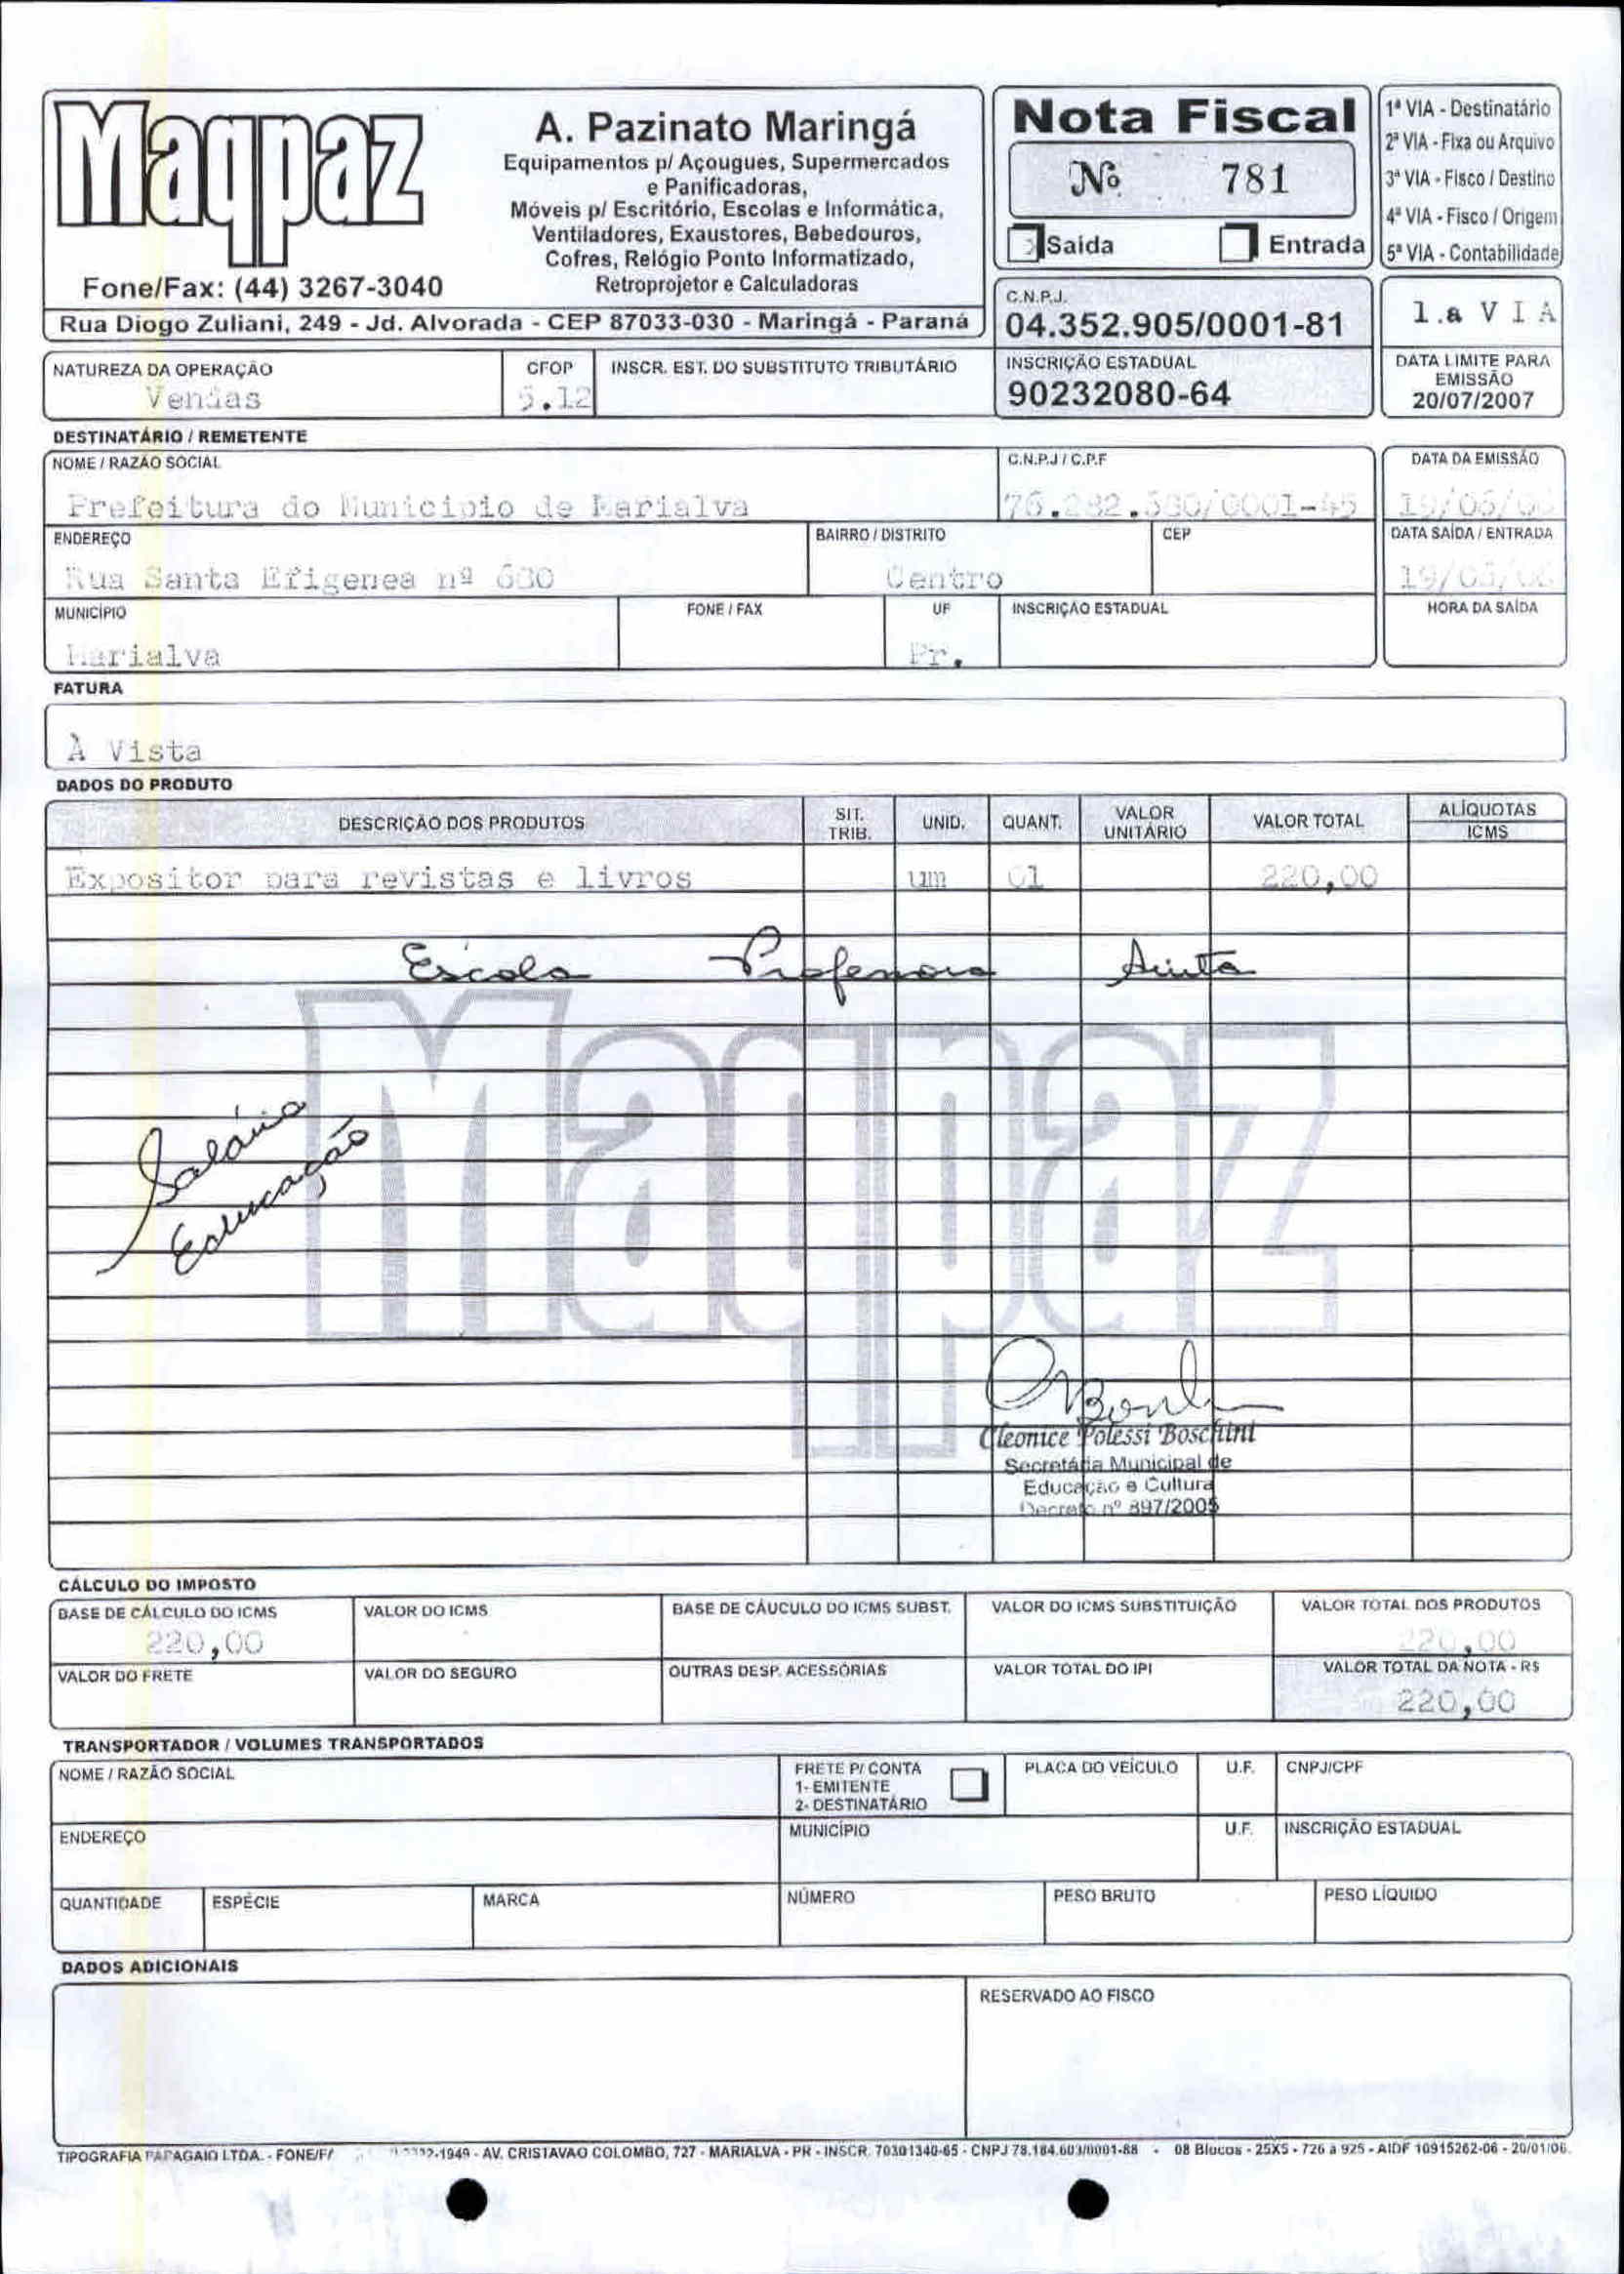 Maqpaz
Fone/Fax: (44) 3267-3040
A. Pazinato Maringá
Equipamentos p/ Açougues, Supermercados
e Panificadoras,
Móveis p/ Escritório, Escolas e Informática,
Ventiladores, Exaustores, Bebedouros,
Cofres, Relógio Ponto Informatizado,
Retroprojetor e Calculadoras
Rua Diogo Zuliani, 249 - Jd. Alvorada - CEP 87033-030 - Maringá - Paraná
Nota Fiscal
Nº 781
Saída Entrada
1ª VIA - Destinatário
2ª VIA - Fixa ou Arquivo
3ª VIA - Fisco / Destino
4ª VIA - Fisco / Origem
5ª VIA - Contabilidade
C.N.P.J.
04.352.905/0001-81
1.a VIA
NATUREZA DA OPERAÇÃO
Vendas
CFOP
5.12
INSCR. EST. DO SUBSTITUTO TRIBUTÁRIO
INSCRIÇÃO ESTADUAL
90232080-64
DATA LIMITE PARA
EMISSÃO
20/07/2007
DESTINATÁRIO / REMETENTE
NOME / RAZÃO SOCIAL
Prefeitura do Municipio de Marialva
C.N.P.J / C.P.F
DATA DA EMISSÃO
ENDEREÇO
Rua Santa Efigenea nº 680
BAIRRO / DISTRITO
Centro
CEP
DATA SAÍDA / ENTRADA
MUNICÍPIO
Marialva
FONE / FAX
UF
Pr.
INSCRIÇÃO ESTADUAL
HORA DA SAÍDA
FATURA
À Vista
DADOS DO PRODUTO
DESCRIÇÃO DOS PRODUTOS SIT. TRIB. UNID. QUANT. VALOR UNITÁRIO VALOR TOTAL ALÍQUOTAS ICMS
Expositor para revistas e livros um 01 220,00
Escola Professora Anita
Maqpaz
Salário
Educação
Cleonice Polessi Boschini
Secretária Municipal de
Educação e Cultura
Decreto nº 897/2005
CÁLCULO DO IMPOSTO
BASE DE CÁLCULO DO ICMS
220,00
VALOR DO ICMS
BASE DE CÁUCULO DO ICMS SUBST.
VALOR DO ICMS SUBSTITUIÇÃO
VALOR TOTAL DOS PRODUTOS
220,00
VALOR DO FRETE
VALOR DO SEGURO
OUTRAS DESP. ACESSÓRIAS
VALOR TOTAL DO IPI
VALOR TOTAL DA NOTA - R$
220,00
TRANSPORTADOR / VOLUMES TRANSPORTADOS
NOME / RAZÃO SOCIAL
FRETE P/ CONTA
1- EMITENTE
2- DESTINATÁRIO
PLACA DO VEÍCULO
U.F.
CNPJ/CPF
ENDEREÇO
MUNICÍPIO
U.F.
INSCRIÇÃO ESTADUAL
QUANTIDADE
ESPÉCIE
MARCA
NÚMERO
PESO BRUTO
PESO LÍQUIDO
DADOS ADICIONAIS
RESERVADO AO FISCO
TIPOGRAFIA PAPAGAIO LTDA. - AV. CRISTAVAO COLOMBO, 727 - MARIALVA - PR - INSCR. 70301340-65 - CNPJ 78.184.603/0001-88 - 08 Blocos - 25X5 - 726 a 925 - AIDF 10915262-06 - 20/01/06.